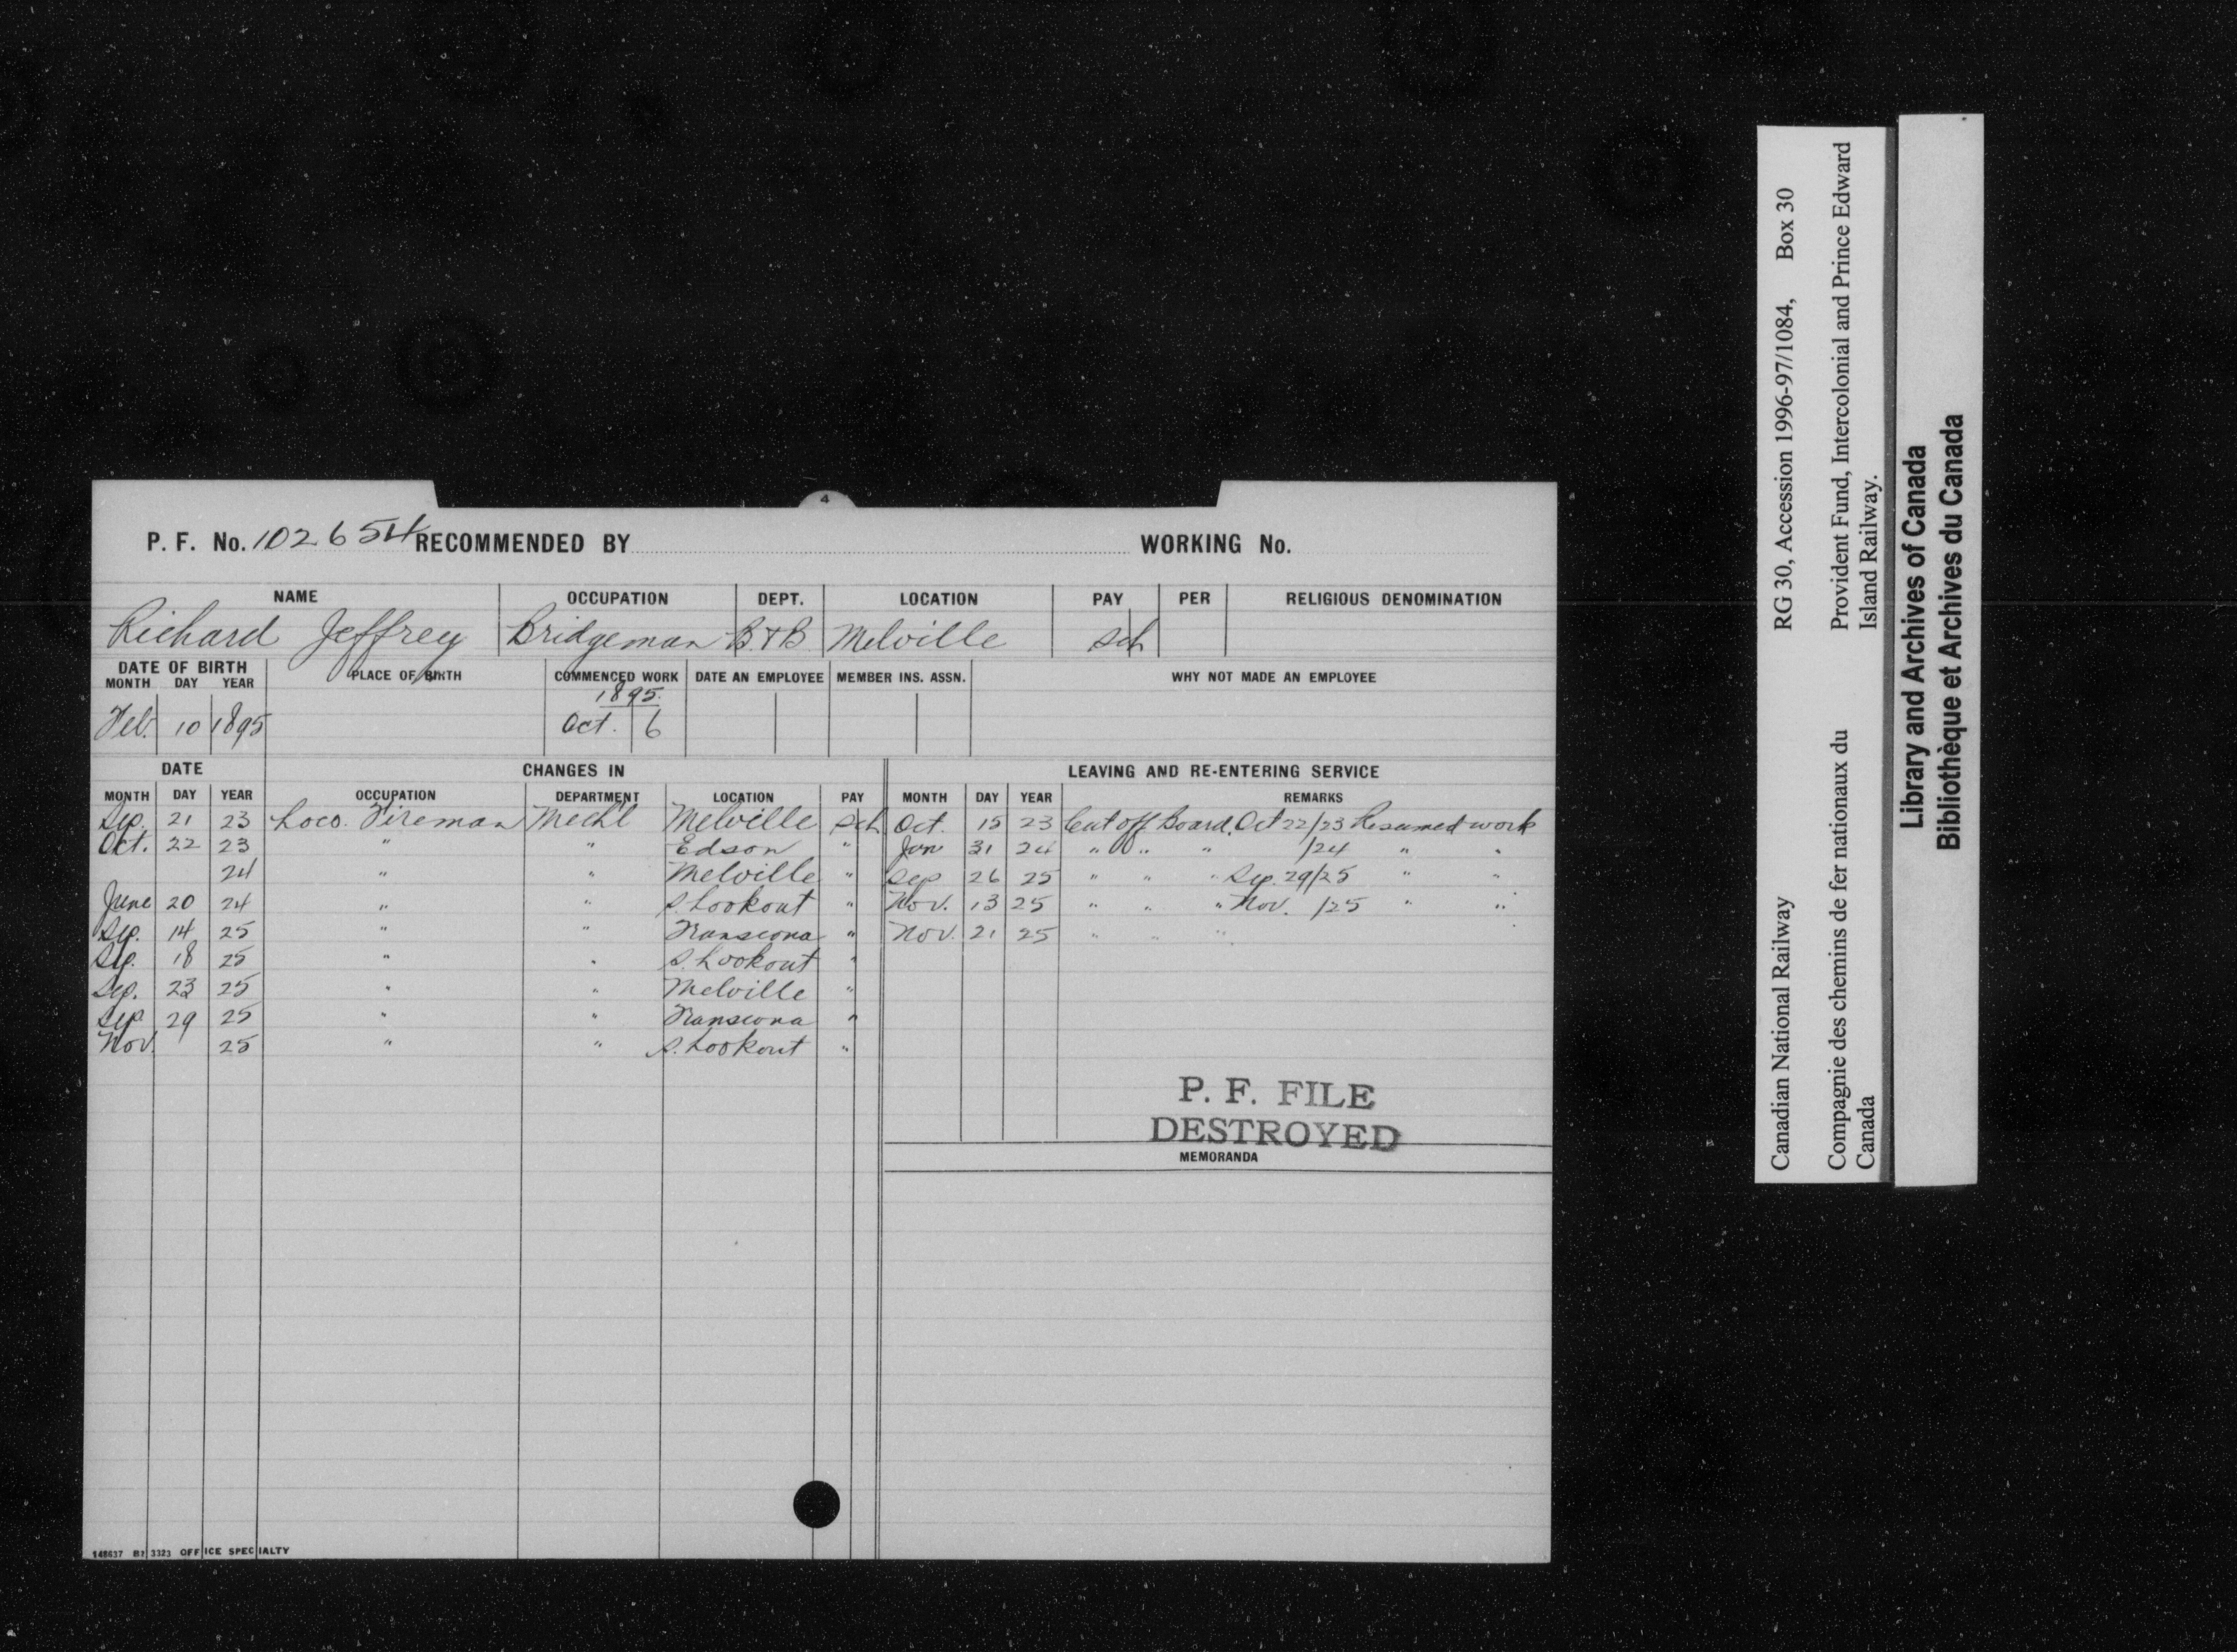 4
P. F. No. 102654 RECOMMENDED BY WORKING No.
NAME OCCUPATION DEPT. LOCATION PAY PER RELIGIOUS DENOMINATION
Richard Jeffrey Bridgeman B.&B. Melville Sch
DATE OF BIRTH PLACE OF BIRTH COMMENCED WORK DATE AN EMPLOYEE MEMBER INS. ASSN. WHY NOT MADE AN EMPLOYEE
MONTH DAY YEAR
1895
Feb. 10 1895 Oct. 6
DATE CHANGES IN LEAVING AND RE-ENTERING SERVICE
MONTH DAY YEAR OCCUPATION DEPARTMENT LOCATION PAY MONTH DAY YEAR REMARKS
Sep. 21 23 Loco. Fireman Mechl Melville Sch Oct. 15 23 Cut off Board. Oct 22/23 Resumed work
Oct. 22 23 " " Edson " Jan 31 24 " " " /24 " "
24 " " Melville " Sep 26 25 " " " Sep. 29/25 " "
June 20 24 " " S. Lookout " Nov. 13 25 " " " Nov. /25 " "
Sep. 14 25 " " Transcona " Nov. 21 25 " " "
Sep. 18 25 " " S. Lookout "
Sep. 23 25 " " Melville "
Sep 29 25 " " Transcona "
Nov. 25 " " S. Lookout "
P. F. FILE
DESTROYED
MEMORANDA
148637 B? 3323 OFFICE SPECIALTY
Canadian National Railway RG 30, Accession 1996-97/1084, Box 30
Compagnie des chemins de fer nationaux du Canada
Provident Fund, Intercolonial and Prince Edward Island Railway.
Library and Archives of Canada
Bibliothèque et Archives du Canada